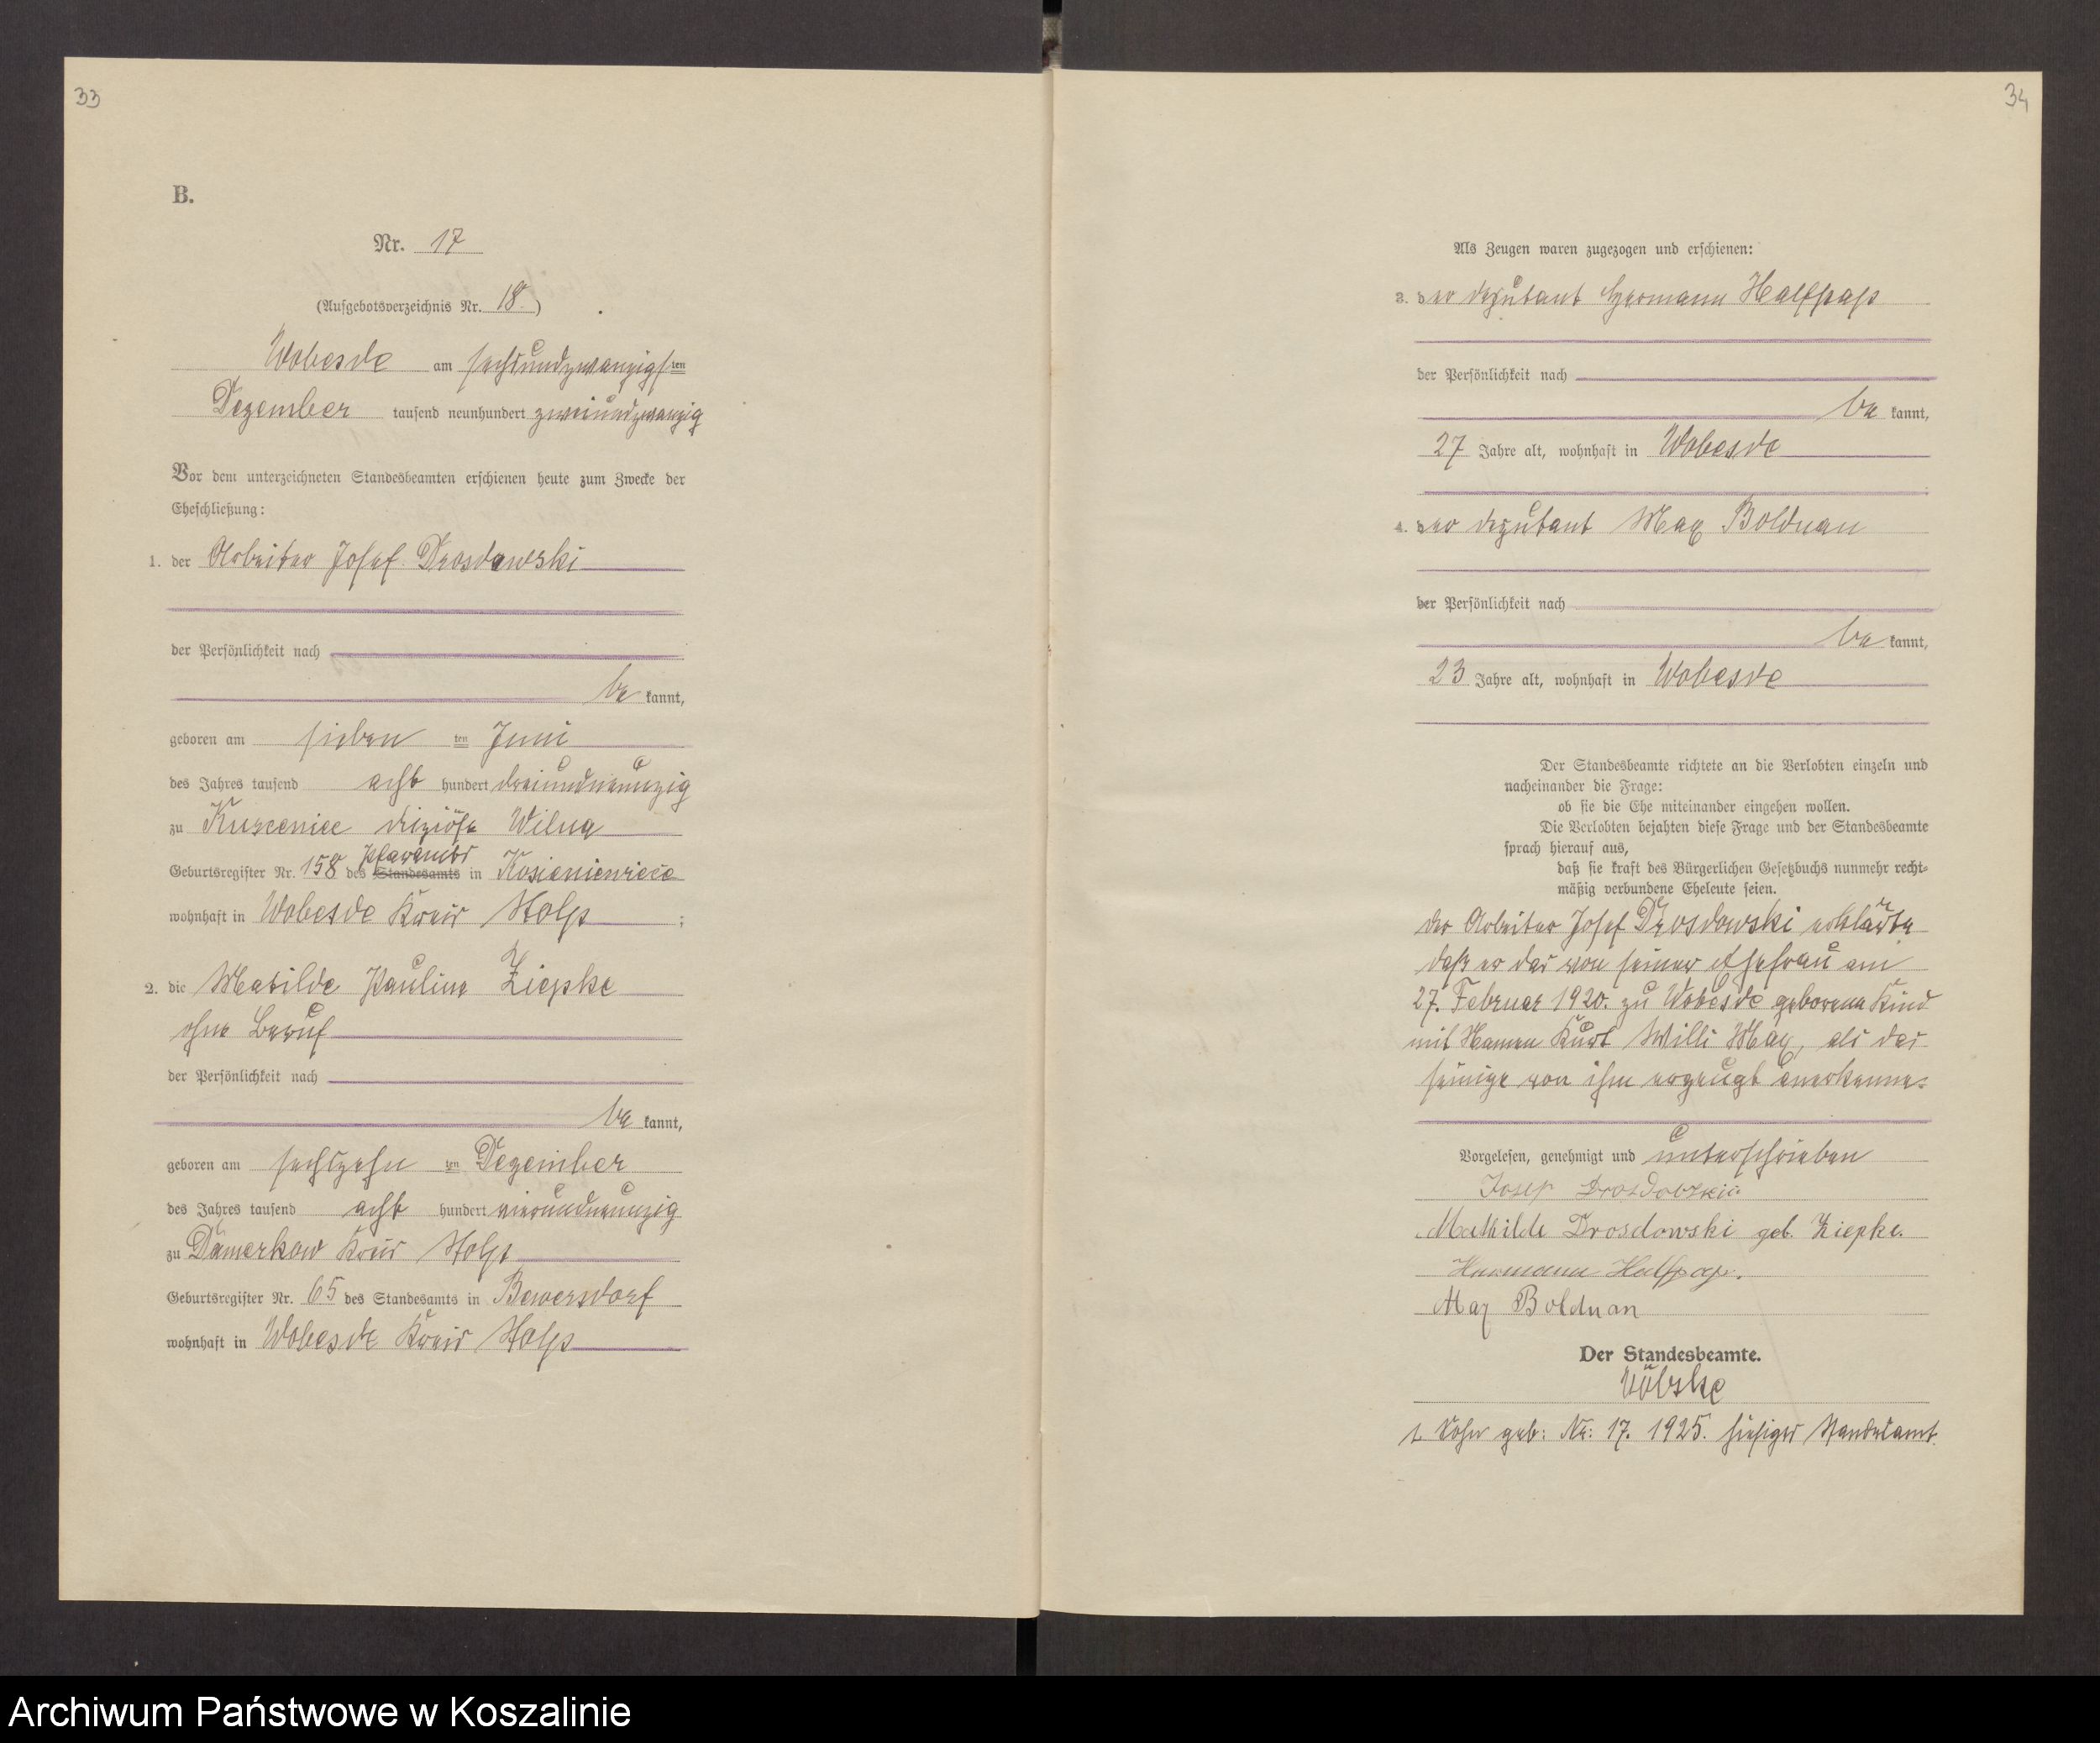 33
B.
Nr. 17
(Aufgebotsverzeichnis Nr. 18.)
Wobesde am sechsundzwanzigsten
Dezember tausend neunhundert zweiundzwanzig
Vor dem unterzeichneten Standesbeamten erschienen heute zum Zwecke der
Eheschließung:
1. der Arbeiter Josef Drosdowski
der Persönlichkeit nach
be kannt,
geboren am sieben ten Juni
des Jahres tausend acht hundert dreiundneunzig
zu Kuscenice diziöse Wilna
Pfarramts
Geburtsregister Nr. 158 des Standesamts in Kosieniewicze
wohnhaft in Wobesde Kreis Stolp ;
2. die Matilde Pauline Ziepke
ohne Beruf
der Persönlichkeit nach
be kannt,
geboren am sechszehn ten Dezember
des Jahres tausend acht hundert vierundneunzig
zu Damerkow Kreis Stolp
Geburtsregister Nr. 65 des Standesamts in Bewersdorf
wohnhaft in Wobesde Kreis Stolp
34
Als Zeugen waren zugezogen und erschienen:
3. der Deputant Hermann Halfpap
der Persönlichkeit nach
be kannt,
27 Jahre alt, wohnhaft in Wobesde
4. der Deputant Max Bolduan
der Persönlichkeit nach
be kannt,
23 Jahre alt, wohnhaft in Wobesde
Der Standesbeamte richtete an die Verlobten einzeln und
nacheinander die Frage:
ob sie die Ehe miteinander eingehen wollen.
Die Verlobten bejahten diese Frage und der Standesbeamte
sprach hierauf aus,
daß sie kraft des Bürgerlichen Gesetzbuchs nunmehr recht-
mäßig verbundene Eheleute seien.
der Arbeiter Josef Drosdowski erklärte
daß er das von seiner Ehefrau am
27. Februar 1920. zu Wobesde geborene Kind
mit Namen Kurt Willi Max, als das
seinige von ihm erzeugt anerkenne.
Vorgelesen, genehmigt und unterschrieben
Josep Drosdowski
Mathilde Drosdowski geb. Ziepke.
Hermann Halfpap.
Max Bolduan
Der Standesbeamte.
1. Sohn geb: Nr: 17. 1925. hiesiges Standesamt.
Archiwum Państwowe w Koszalinie